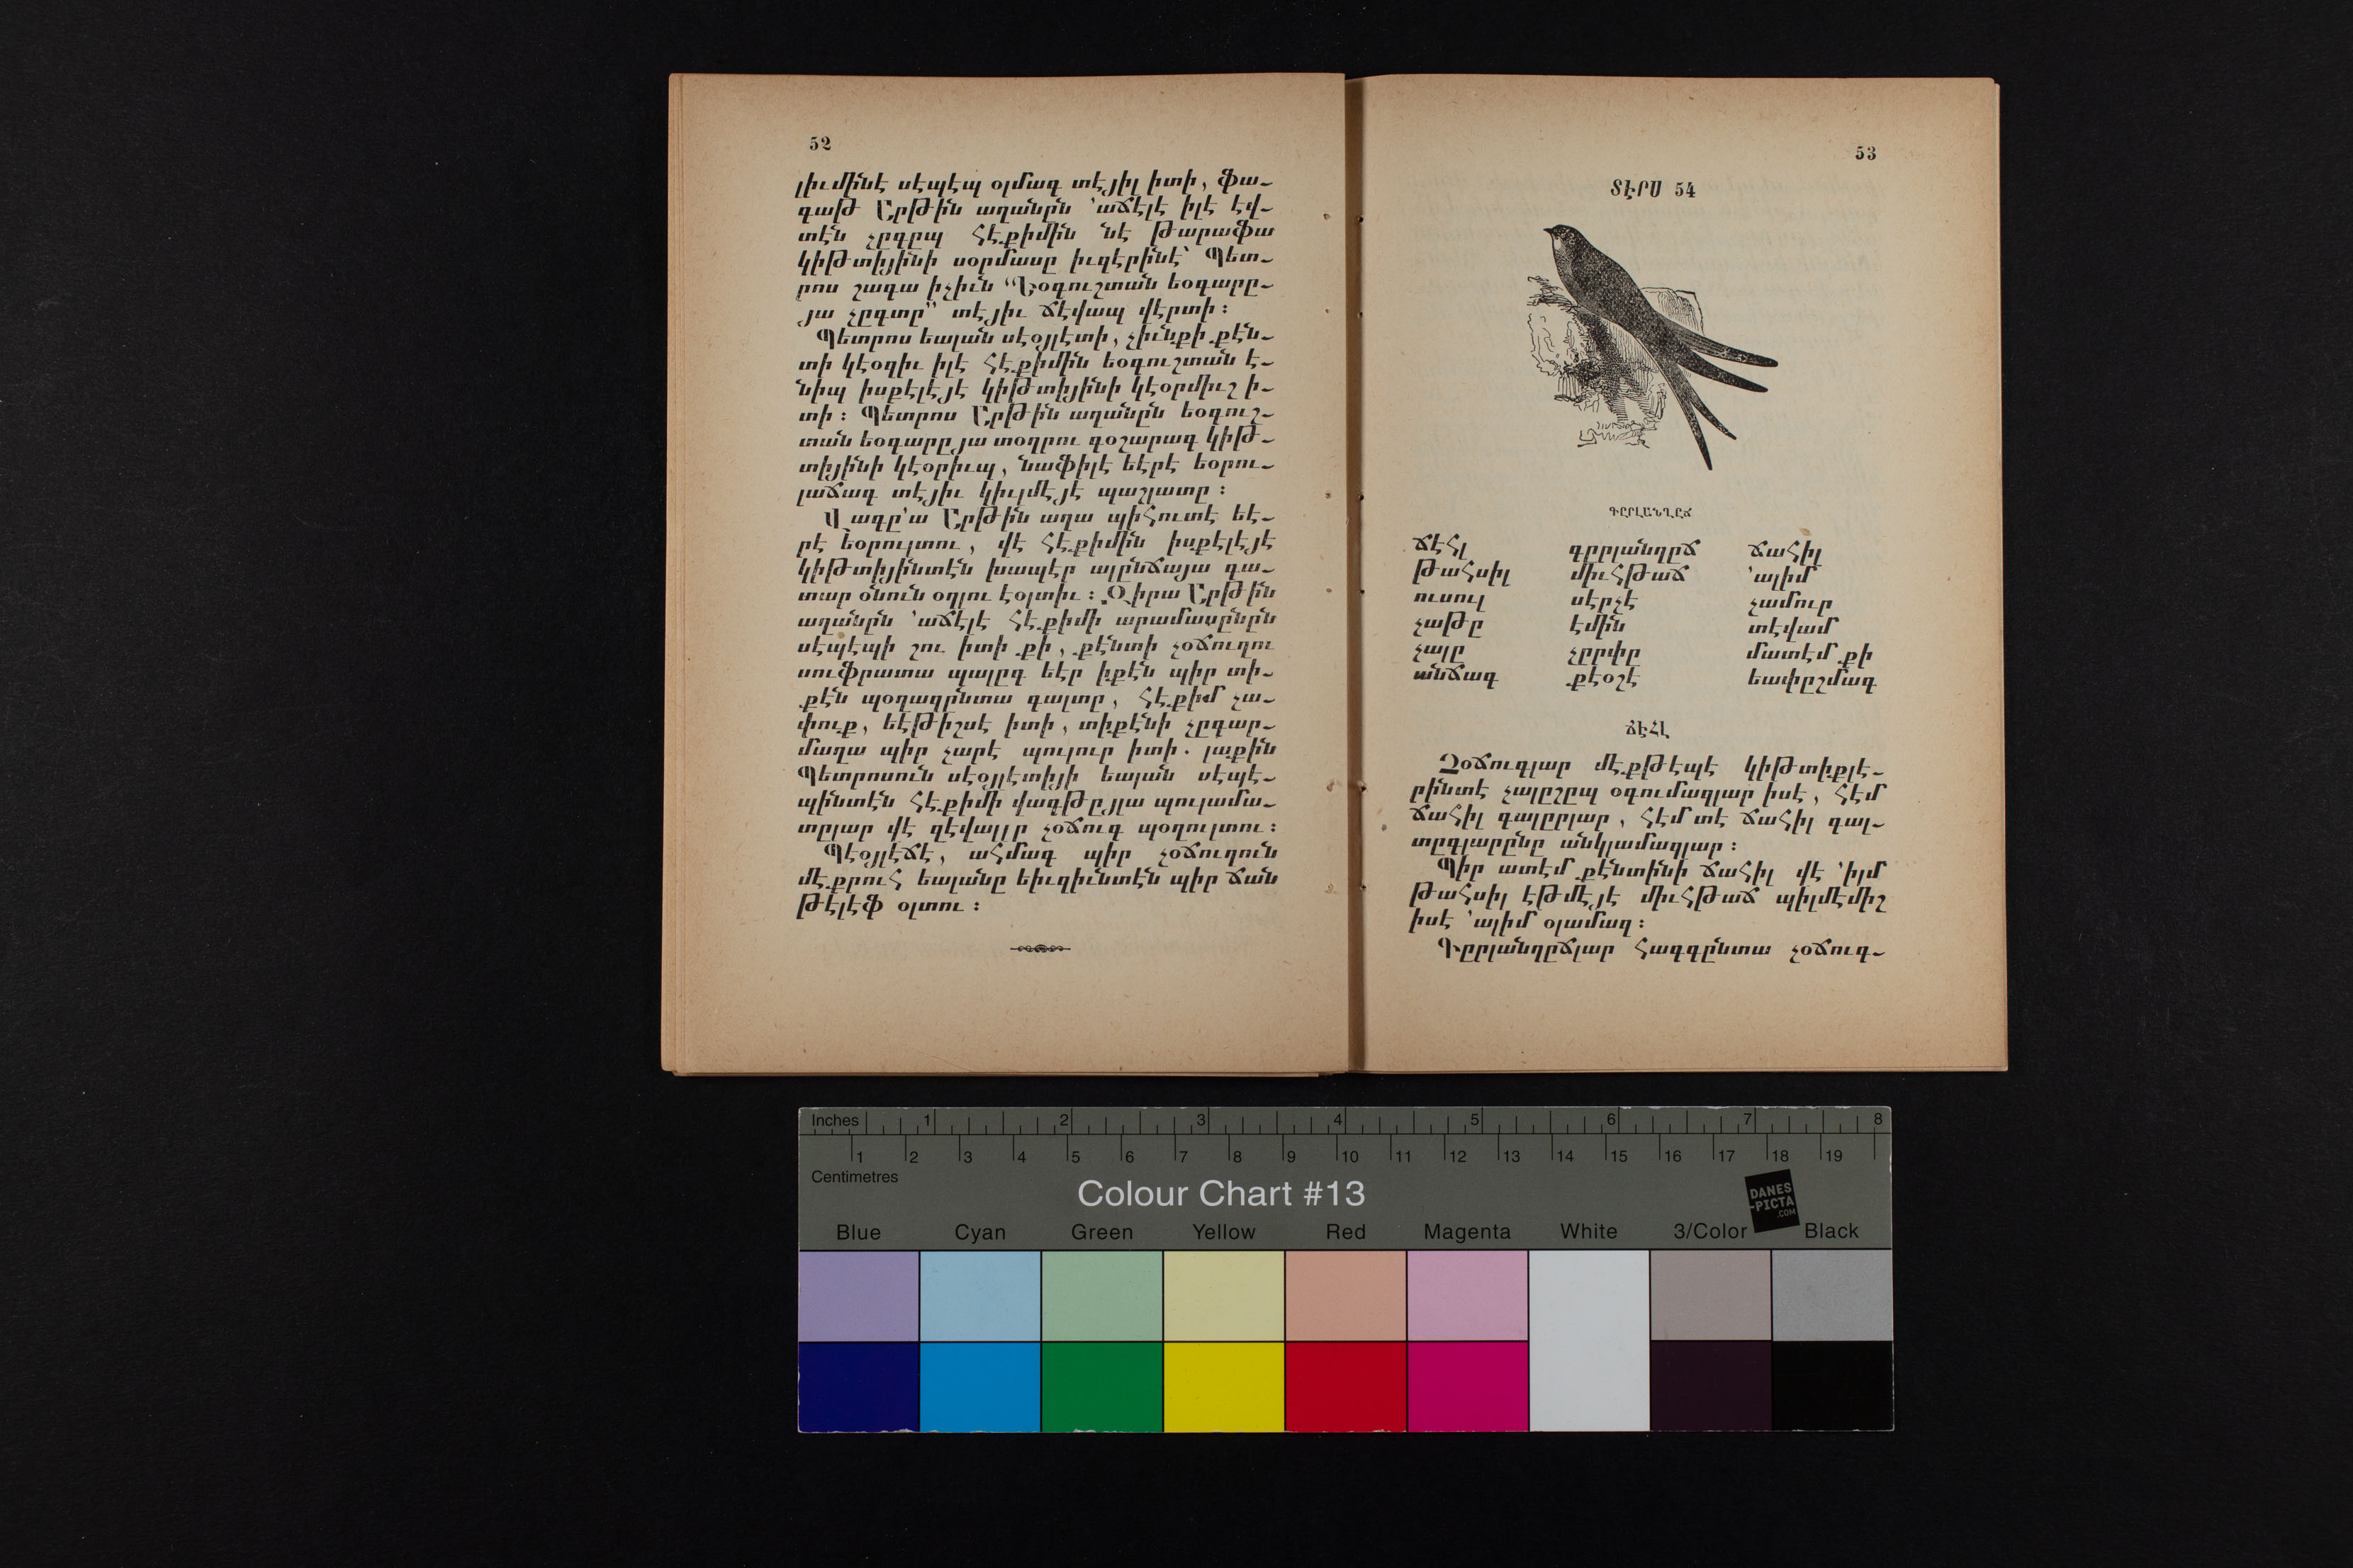 52
լիւմինէ սէպէպ օլմագ տէյիլ իտի, ֆա-
գաթ Արթին աղանըն ՚աճէլէ իլէ էվ-
տէն չըգըպ հէքիմին նէ թարաֆա
կիթտիյինի սօրմասը իւզէրինէ՝ Պետ-
րոս շագա իչիւն “Եօգուշտան եօգարը-
յա չըգտը” տէյիւ ճէվապ վէրտի։
Պետրոս եալան սէօյլէտի, չիւնքի քէն-
տի կէօզիւ իլէ հէքիմին եօգուշտան է-
նիպ իսքէլէյէ կիթտիյինի կէօրմիւշ ի-
տի։ Պետրոս Արթին աղանըն եօգուշ-
տան եօգարըյա տօղրու գօշարագ կիթ-
տիյինի կէօրիւպ, նաֆիլէ եէրէ եօրու-
լաճագ տէյիւ կիւլմէյէ պաշլատը։
Վագը՚ա Արթին աղա պիհուտէ եէ-
րէ եօրուլտու, վէ հէքիմին իսքէլէյէ
կիթտիյինտէն խապէր ալընճայա գա-
տար օնուն օղլու էօլտիւ։ Զիրա Արթին
աղանըն ՚աճէլէ հէքիմի արամասընըն
սէպէպի շու իտի քի, քէնտի չօճուղու
սուֆրատա պալըգ եէր իքէն պիր տի-
քէն պօղազընտա գալտը, հէքիմ չա-
փուք, եէթիշսէ իտի, տիքէնի չըգար-
մաղա պիր չարէ պուլուր իտի. լաքին
Պետրոսուն սէօյլէտիյի եալան սէպէ-
պինտէն հէքիմի վագթըյլա պուլամա-
տըլար վէ զէվալլը չօճուգ պօղուլտու։
Պէօյլէճէ, ահմագ պիր չօճուղուն
մէքրուհ եալանը եիւզիւնտէն պիր ճան
թէլէֆ օլտու։
53
ՏԷՐՍ 54
ԳԸՐԼԱՆՂԸՃ
ճէհլ գըրլանղըճ ճահիլ
թահսիլ միւհթաճ ՚ալիմ
ուսուլ սէրչէ չամուր
չաթը էմին տէվամ
չալը չըրփը մատէմ քի
անճագ քէօշէ եափըշմագ
ՃԷՀԼ
Չօճուգլար մէքթէպէ կիթտիքլէ-
րինտէ չալըշըպ օգումազլար իսէ, հէմ
ճահիլ գալըրլար, հէմ տէ ճահիլ գալ-
տըգլարընը անկլամազլար։
Պիր ատէմ քէնտինի ճահիլ վէ ՚իլմ
թահսիլ էթմէյէ միւհթաճ պիլմէմիշ
իսէ ՚ալիմ օլամազ։
Գըրլանղըճլար հագգընտա չօճուգ-
Inches 1 2 3 4 5 6 7 8
1 2 3 4 5 6 7 8 9 10 11 12 13 14 15 16 17 18 19
Centimetres
Colour Chart #13
DANES
-PICTA
.COM
Blue Cyan Green Yellow Red Magenta White 3/Color Black